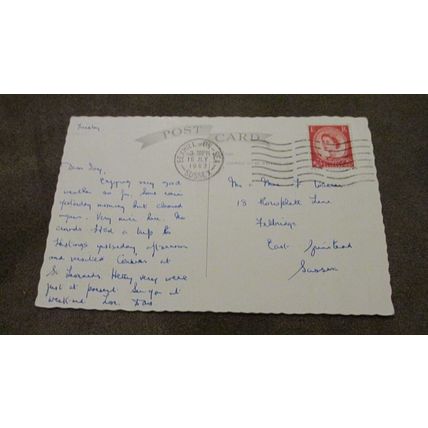 Tuesday
POST CARD
BEXHILL-ON-SEA
3 15PM
16 JLY
1963
SUSSEX
Dear Joy,
Enjoying very good
weather so far, some rain
yesterday morning but cleared
again. Very nice here. No
crowds. Had a trip to
Hastings yesterday afternoon
and visited Cousins at
St. Leonards. Hetty very
just at present. See you at
week-end. Love
Mr & Mrs F
18 Rowplatt Lane
Felbridge
East Grinstead
Sussex